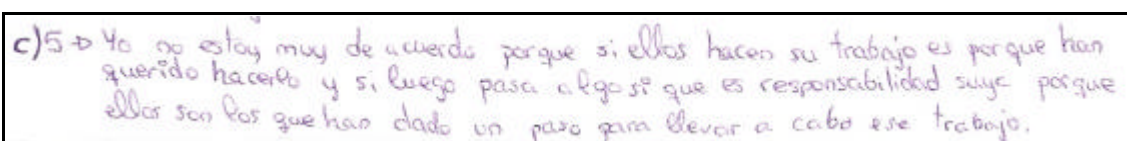 c) 5 → Yo no estoy muy de acuerdo porque si ellos hacen su trabajo es porque han
querido hacerlo y si luego pasa algo si que es responsabilidad suya porque
ellos son los que han dado un paso para llevar a cabo ese trabajo.